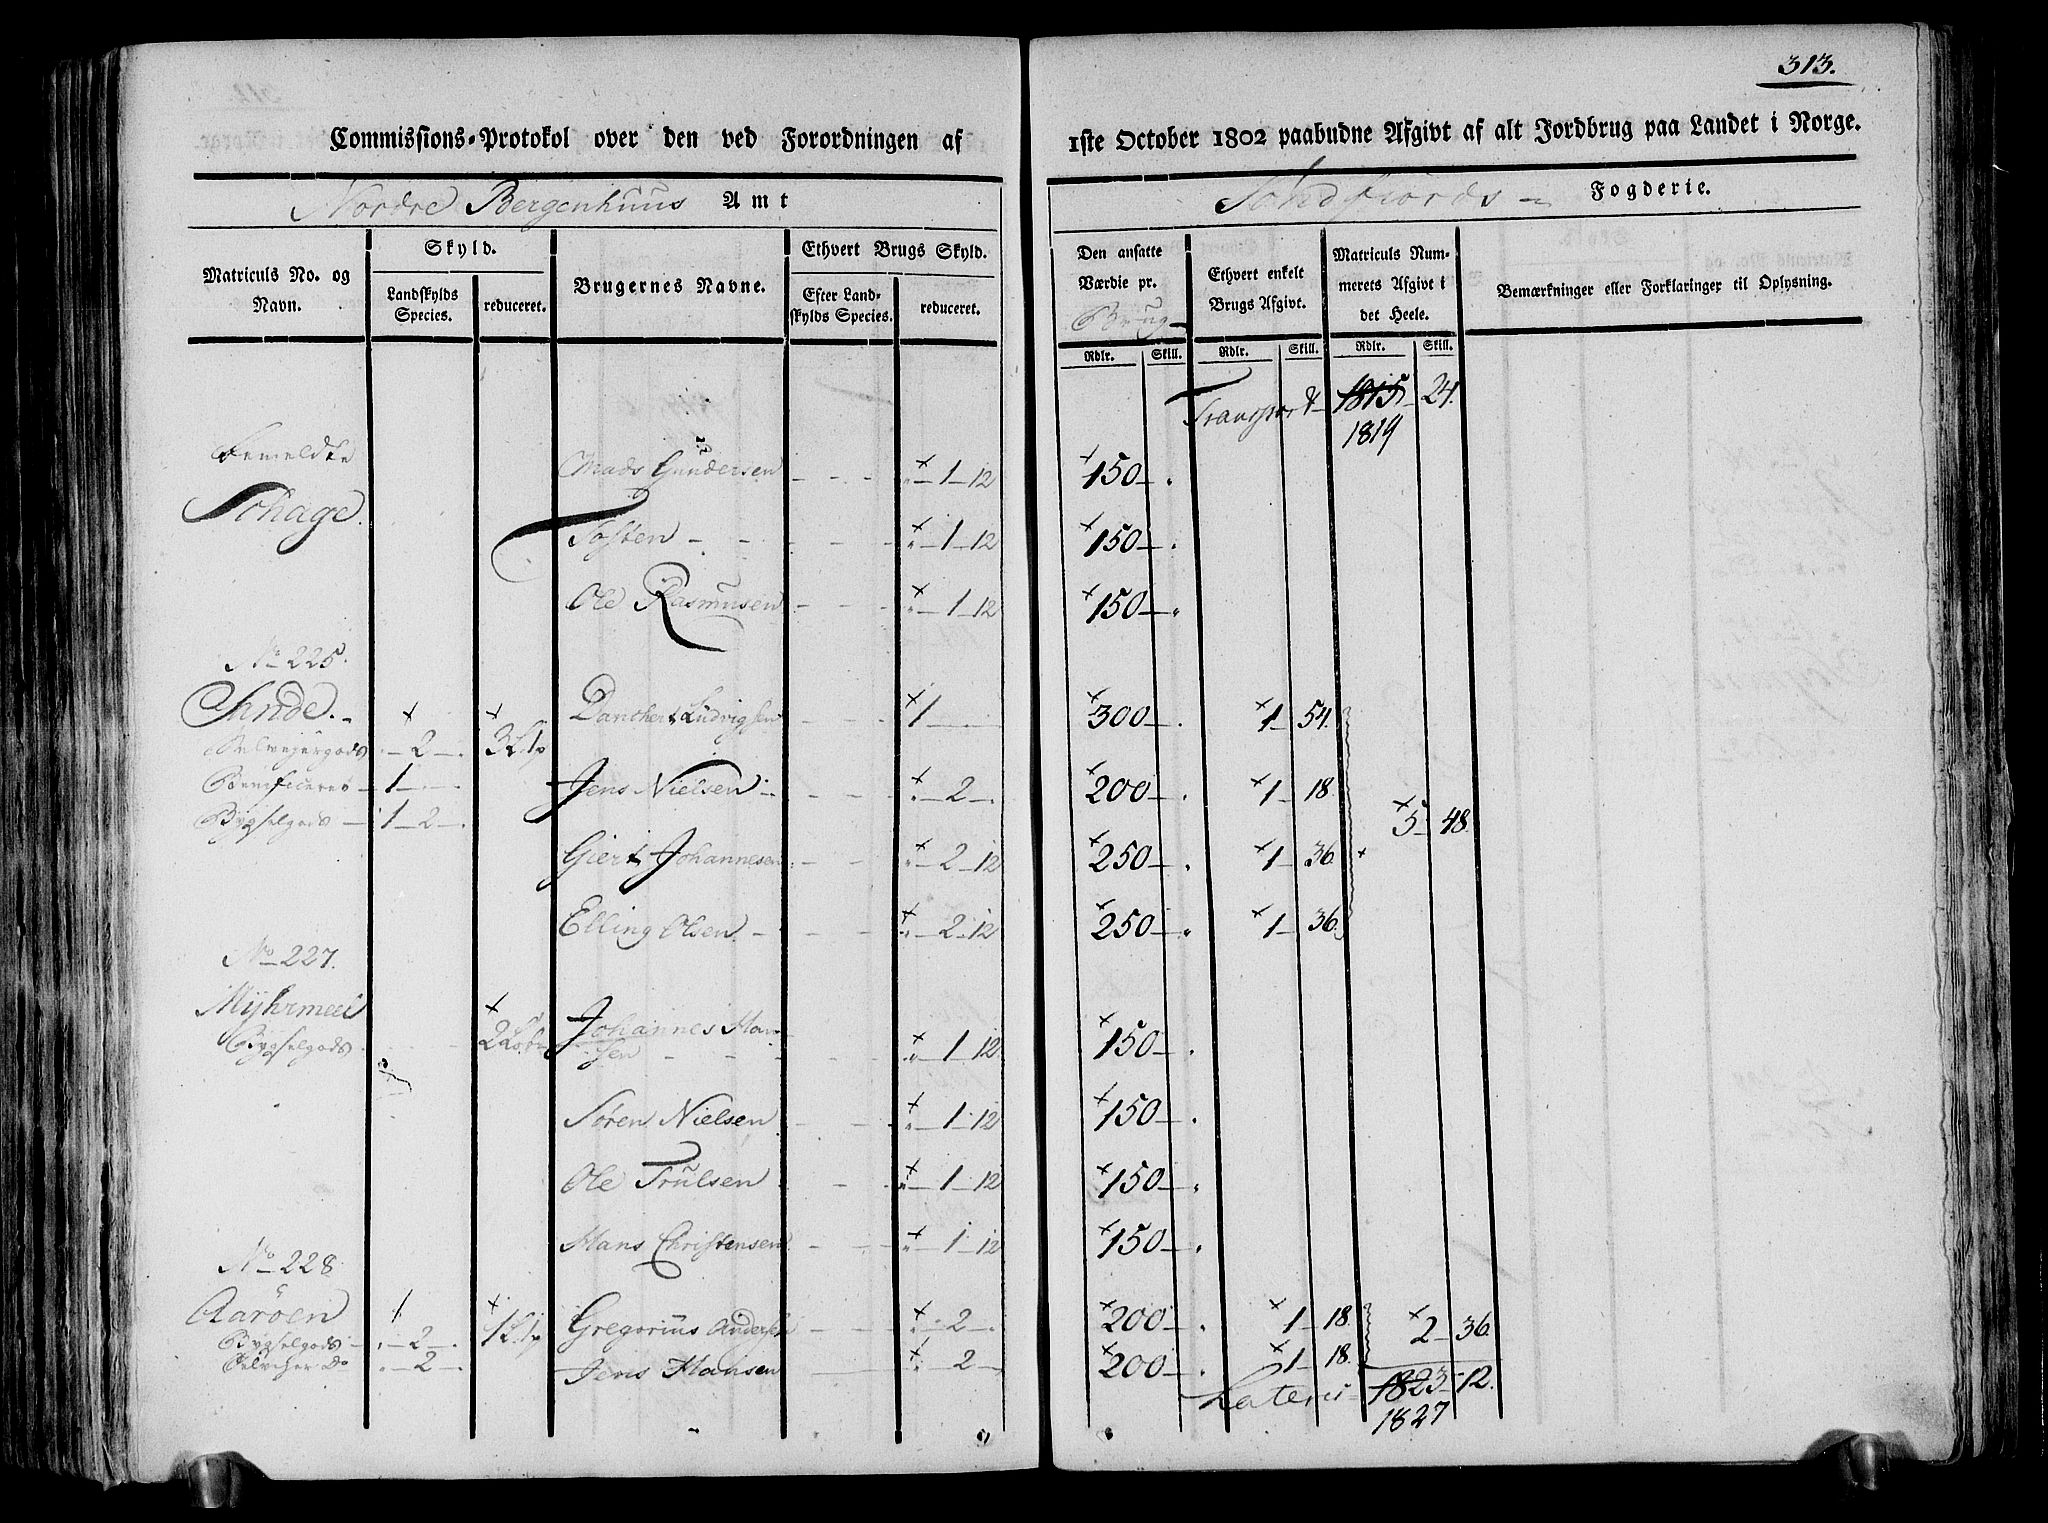 313.
Commissions-Protokol over den ved Forordningen af 1ste October 1802 paabudne Afgivt af alt Jordbrug paa Landet i Norge.
Nordre Bergenhuus Amt Søndfiords Fogderie.
Matriculs No. og Navn.
Skyld.
Landskylds Species.
reduceret.
Brugernes Navne.
Ethvert Brugs Skyld.
Efter Landskylds Species.
reduceret.
Den ansatte Værdie pr. Brug
Ethvert enkelt Brugs Afgivt.
Matriculs Nummerets Afgivt i det Heele.
Bemærkninger eller Forklaringer til Oplysning.
Rdlr. Skill. Rdlr. Skill. Rdlr. Skill.
Transport 1815 24.
1819
Bemeldte
Schage. Mads Gundersen 1 12 150
Tosten 1 12 150
Ole Rasmusen 1 12 150
No 225.
Sande. Danchert Ludvigsen 1 300 1 54.
Selvejergods 2 3 L 1 p
Beneficeret 1 Jens Nielsen 2 200 1 18
Bygselgods 1 2 5 48.
Giert Johannesen 2 12 250 1 36
Elling Olsen 2 12 250 1 36
No 227.
Myhrmeel Johannes Han
Bygselgods sen 1 12 150
Søren Nielsen 1 12 150
Ole Trulsen 1 12 150
Hans Christensen 1 12 150
No 228
Aarøen 1 1 L 1 p Gregorius Andersen 2 200 1 18 2 36
Bygselgods 2
Selveier Do 2 Jens Hansen 2 200 1 18.
Lateris 1823 12.
1827